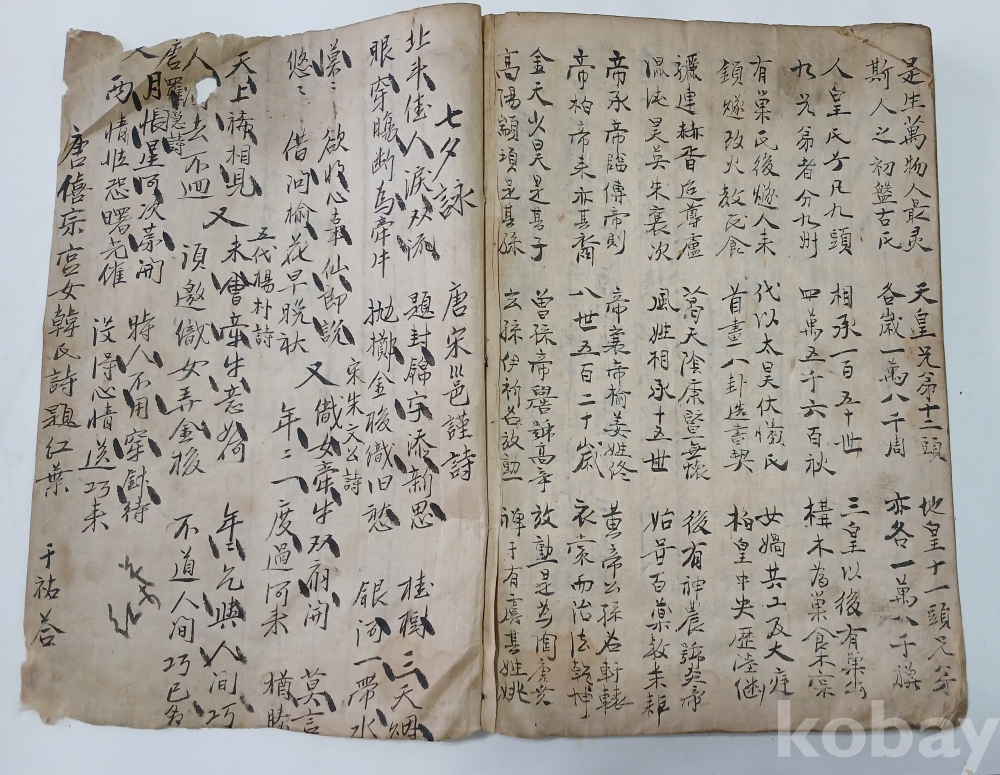 是生萬物人最灵 天皇兄弟十二頭 地皇十一頭兄弟
斯人之初盤古氏 各歲一萬八千周 亦各一萬八千
人皇氏方凡九頭 相承一百五十世 三皇以後有巢出
九兄弟者分九州 四萬五千六百秋 構木為巢食木果
有巢氏後燧人来 代以太昊伏犧氏 女媧共工及大庭
鎖燧改火教民食 首畫八卦造書契 栢皇中央歷陸
驪連赫胥近尊盧 葛天陰康曁無懷 後有神農號炎帝
混沌昊英朱襄次 風姓相承十五世 始甞百藥教耒耜
帝承帝臨傳帝則 帝襄帝榆姜姓終 黄帝公孫名軒轅
帝栢帝来亦其裔 八世五百二十歲 衣裳而治法乾坤
金天少昊是其子 曾孫帝嚳號高辛 放勳是為陶唐
高陽顓頊是其孫 玄孫伊祈名放勳 禅于有虞其姓姚
七夕詠 唐宋 詩
北斗佳人淚双流 題封錦字添新思 桂樹三天烟
眼穿膓断為牽牛 抛擲金梭織旧愁 銀河一帶水
悠悠 借問榆花早晚秋 又 宋朱文公詩 年二一度過河来
欲将心事仙郎說 織女牽牛双扇開 莫言
天上稀相見 又 五代楊朴詩
未會牽牛意如何 年年乞與人間巧
須邀織女弄金梭 不道人間巧已多
唐羅隱詩
月帳星河次第開 時人不用穿針待
两情惟恐曙光催 没得心情送巧来
唐僖宗宫女韓氏詩題红葉 于祐答